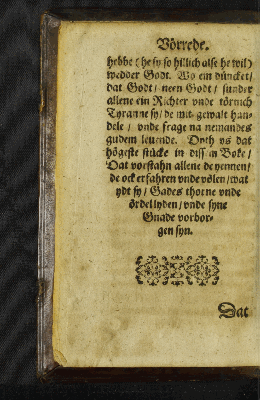 Vörrede.
hebbe (he sy so hillich alse he wil)
wedder Godt. Wo ein düncket /
dat Godt / neen Godt / sunder
allene ein Richter vnde törnich
Tyranne sy / de mit gewalt han-
dele / vnde frage na nemandes
gudem leuende. Dyth ys dat
högeste stücke in dissem Boke /
Dat vorstahn allene de yennen /
de ock erfahren vnde völen / wat
ydt sy / Gades thorne vnde
ördel lyden / vnde syne
Gnade vorbor-
gen syn.
Dat